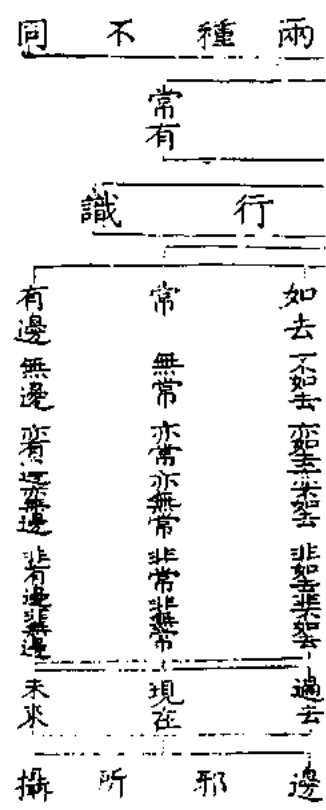 兩種不同
常有
行識
如去
不如去
亦如去亦不如去
非如去非不如去
常
無常
亦常亦無常
非常非無常
有邊
無邊
亦有邊亦無邊
非有邊非無邊
過去
現在
未來
邊邪所攝